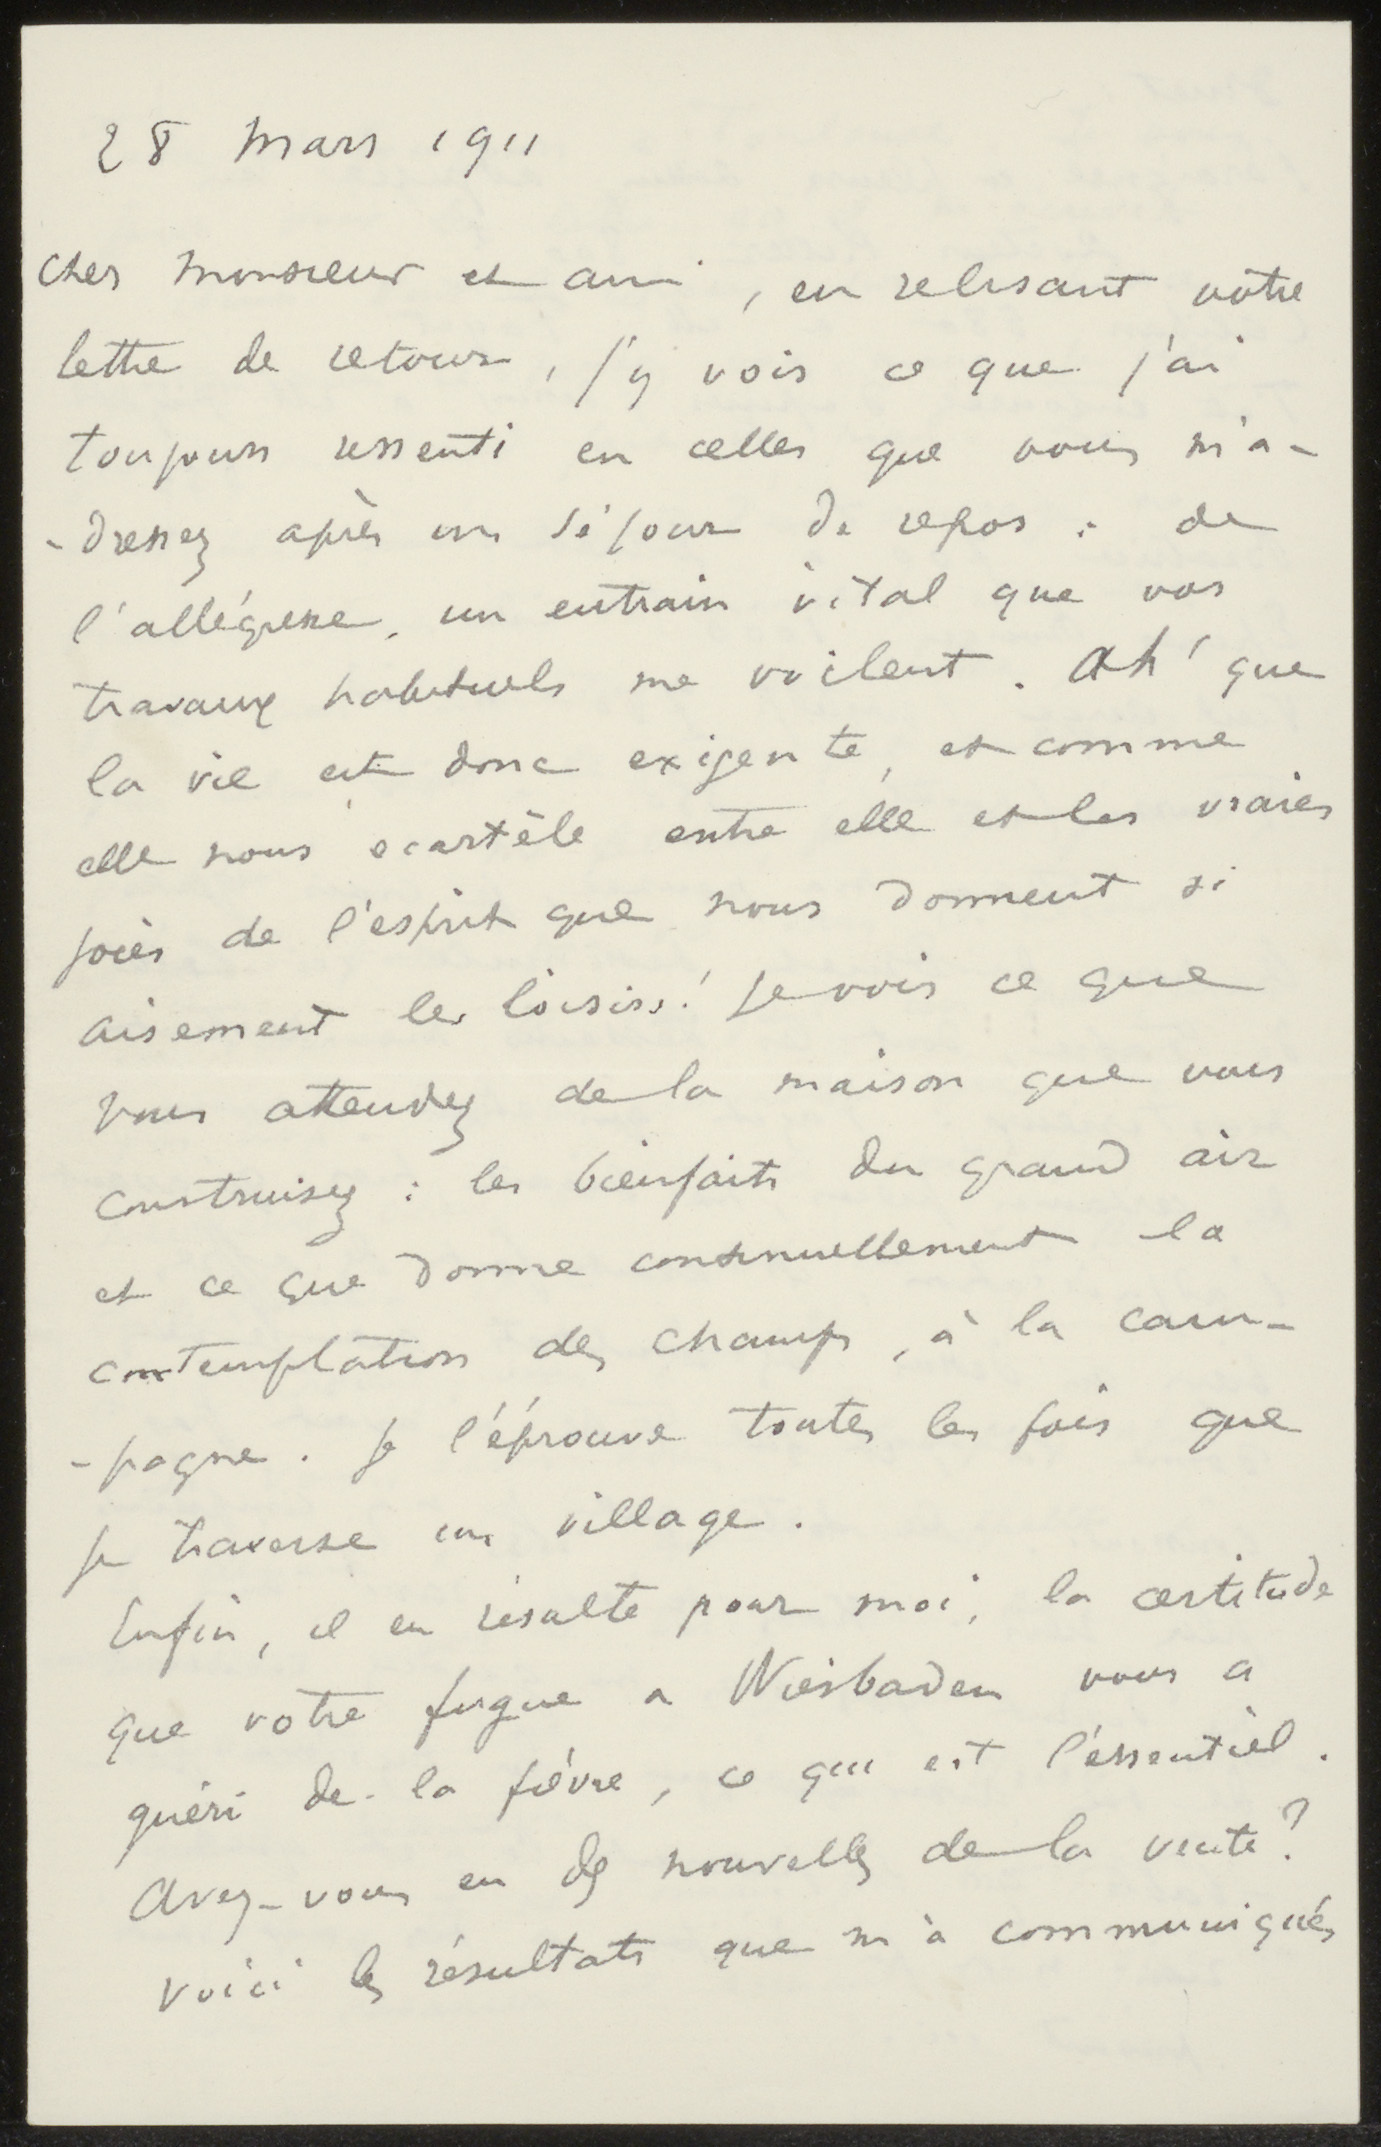 28 mars 1911
Cher monsieur et ami, en relisant votre
lettre de retour, j'y vois ce que j'ai
toujours ressenti en celles que vous m'a-
-dressez après un séjour de repos : de
l'allégresse, un entrain vital que vos
travaux habituels me voilent. Ah! que
la vie est donc exigente, et comme
elle nous ecartèle entre elle et les vraies
joies de l'esprit que nous donnent si
aisement les loisirs! Je vois ce que
vous attendez de la maison que vous
construisez : les bienfaits du grand air
et ce que donne continuellement la
contemplation des champs, à la cam-
-pagne. Je l'éprouve toutes les fois que
je traverse un village.
Enfin, il en résulte pour moi, la certitude
que votre fugue a Wiesbaden vous a
guéri de la fièvre, ce qui est l'éssentiel.
Avez-vous eu des nouvelles de la vente?
Voici les résultats que m'a communiqués